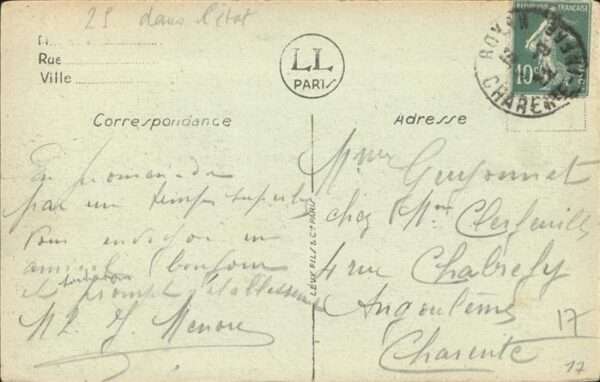 25 dans l'état
M
Rue
Ville
LL
PARIS
RÉPUBLIQUE FRANÇAISE
10c
ROYAN
CHARENTE
Correspondance
Adresse
En promenade
par un temps superbe
vous envoyons un
amical bonjour
et souhaitons prompt rétablissement
Mme Guyonnet
chez Mme
4 rue Chabrefy
Angoulême
Charente
LÉVY FILS & Cie PARIS
17
17